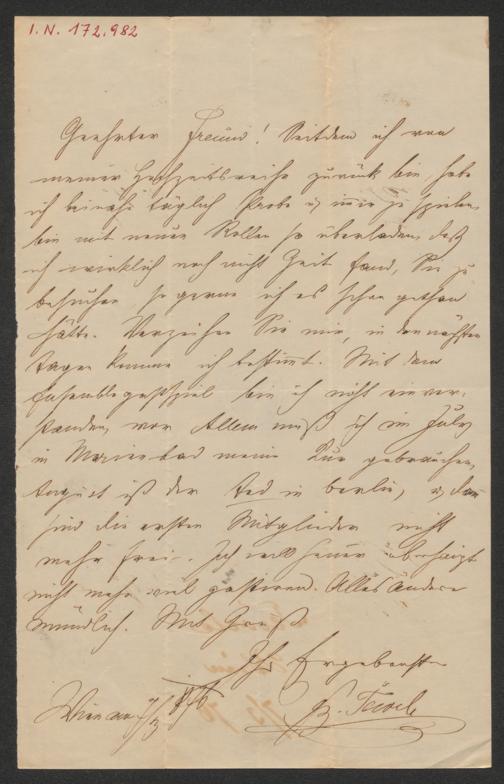 I. N. 172.982
Geehrter Freund! Seitdem ich von
meiner Hochzeitsreise zurück bin, habe
ich beinahe täglich Probe u immer zu spielen,
bin mit neuen Rollen so überladen, daß
ich wirklich noch nicht Zeit fand, Sie zu
besuchen so gerne ich es schon gethan
hätte. Verzeihen Sie mir, in den nächsten
Tagen komme ich bestimt. Mit dem
Ensemblegastspiel bin ich nicht einver-
standen, vor Allem muß ich im July
in Marienbad meine Kur gebrauchen,
August ist der Tod in Berlin, u dan
sind die ersten Mitglieder nicht
mehr frei. Ich will heuer überhaupt
nicht mehr viel gastiren. Alles Andere
mündlich. Mit Gruß
Ihr Ergebenster
Wien am 7/3